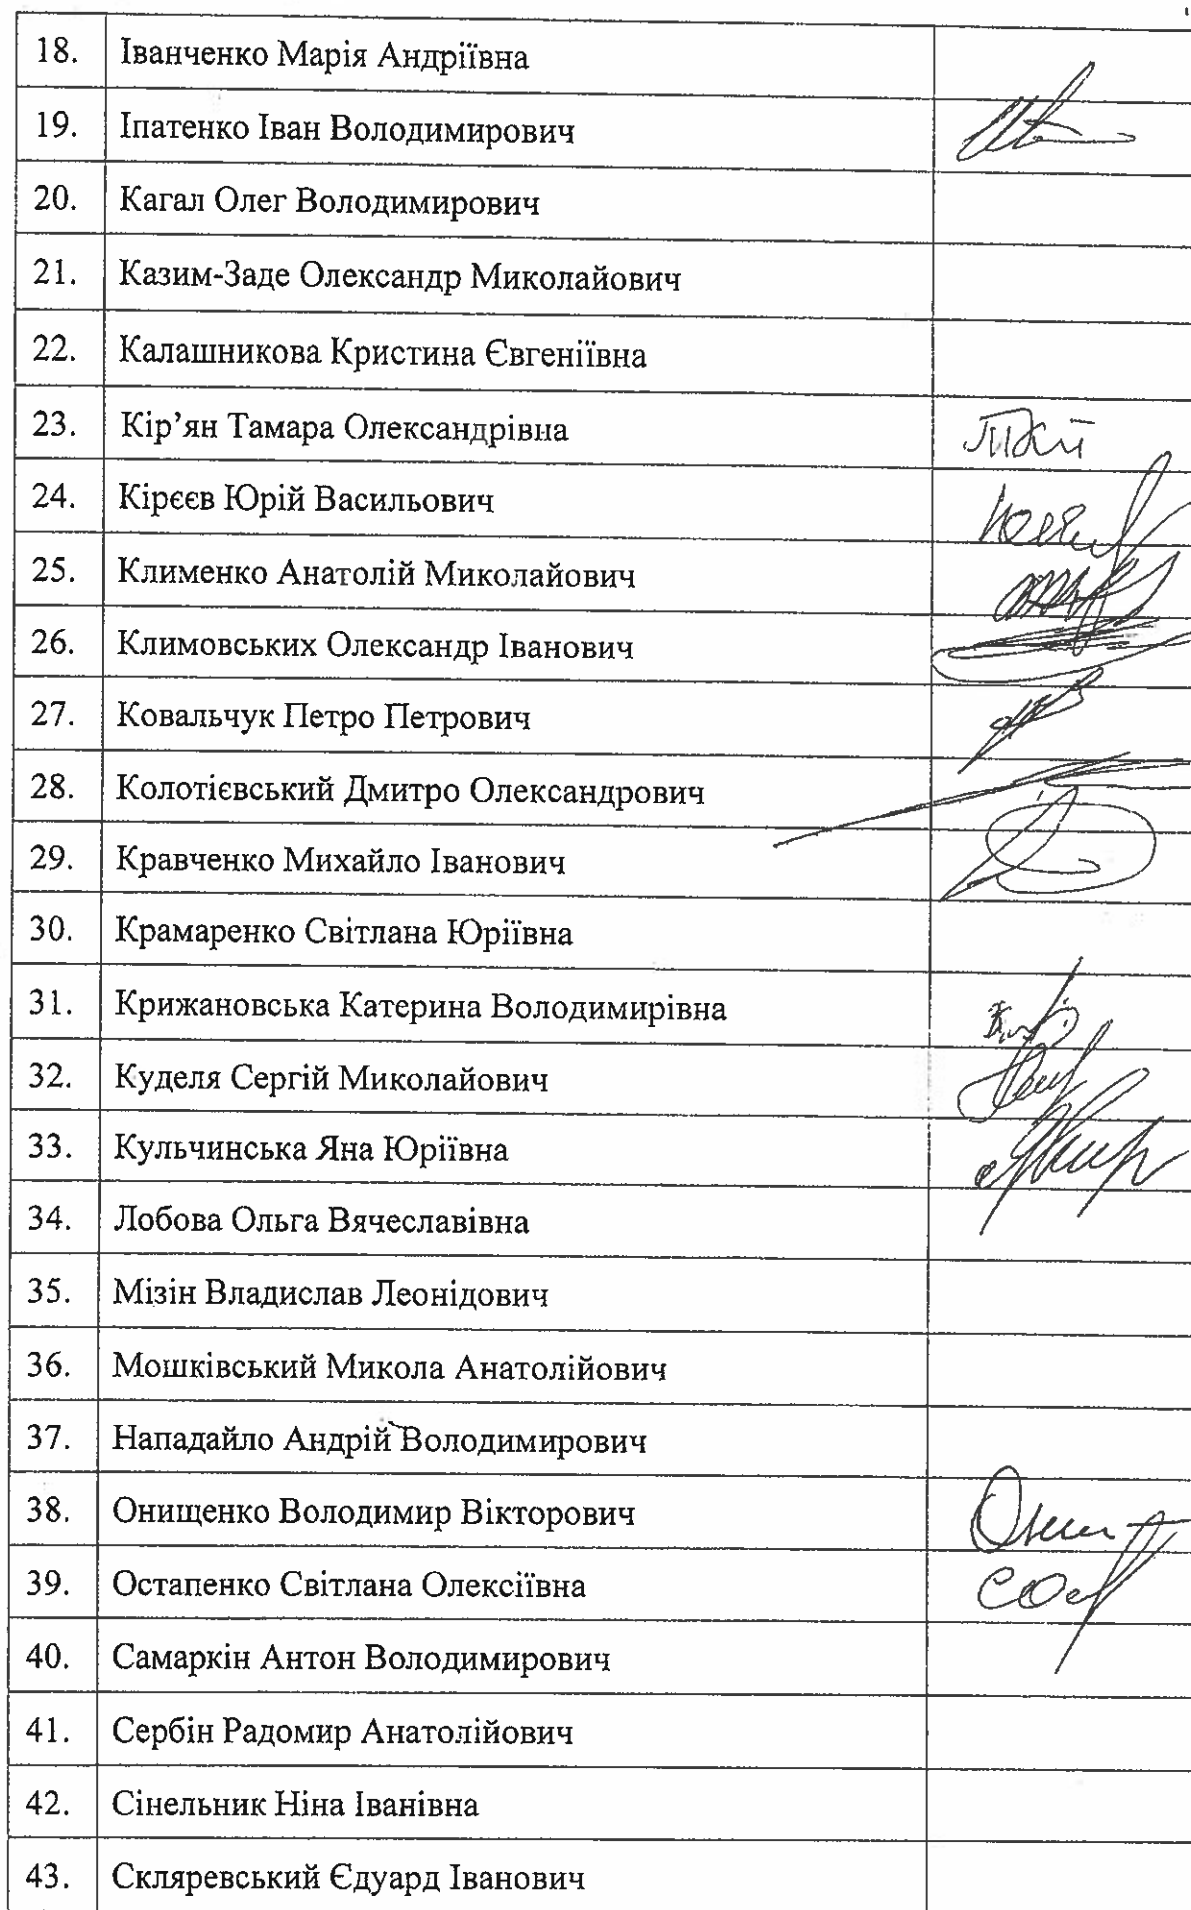 18. Іванченко Марія Андріївна
19. Іпатенко Іван Володимирович
20. Кагал Олег Володимирович
21. Казим-Заде Олександр Миколайович
22. Калашникова Кристина Євгеніївна
23. Кір’ян Тамара Олександрівна
24. Кірєєв Юрій Васильович
25. Клименко Анатолій Миколайович
26. Климовських Олександр Іванович
27. Ковальчук Петро Петрович
28. Колотієвський Дмитро Олександрович
29. Кравченко Михайло Іванович
30. Крамаренко Світлана Юріївна
31. Крижановська Катерина Володимирівна
32. Куделя Сергій Миколайович
33. Кульчинська Яна Юріївна
34. Лобова Ольга Вячеславівна
35. Мізін Владислав Леонідович
36. Мошківський Микола Анатолійович
37. Нападайло Андрій Володимирович
38. Онищенко Володимир Вікторович
39. Остапенко Світлана Олексіївна
40. Самаркін Антон Володимирович
41. Сербін Радомир Анатолійович
42. Сінельник Ніна Іванівна
43. Скляревський Єдуард Іванович